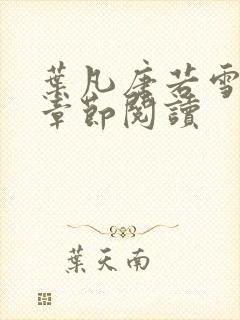 葉凡唐若雪
章節閱讀
葉天南